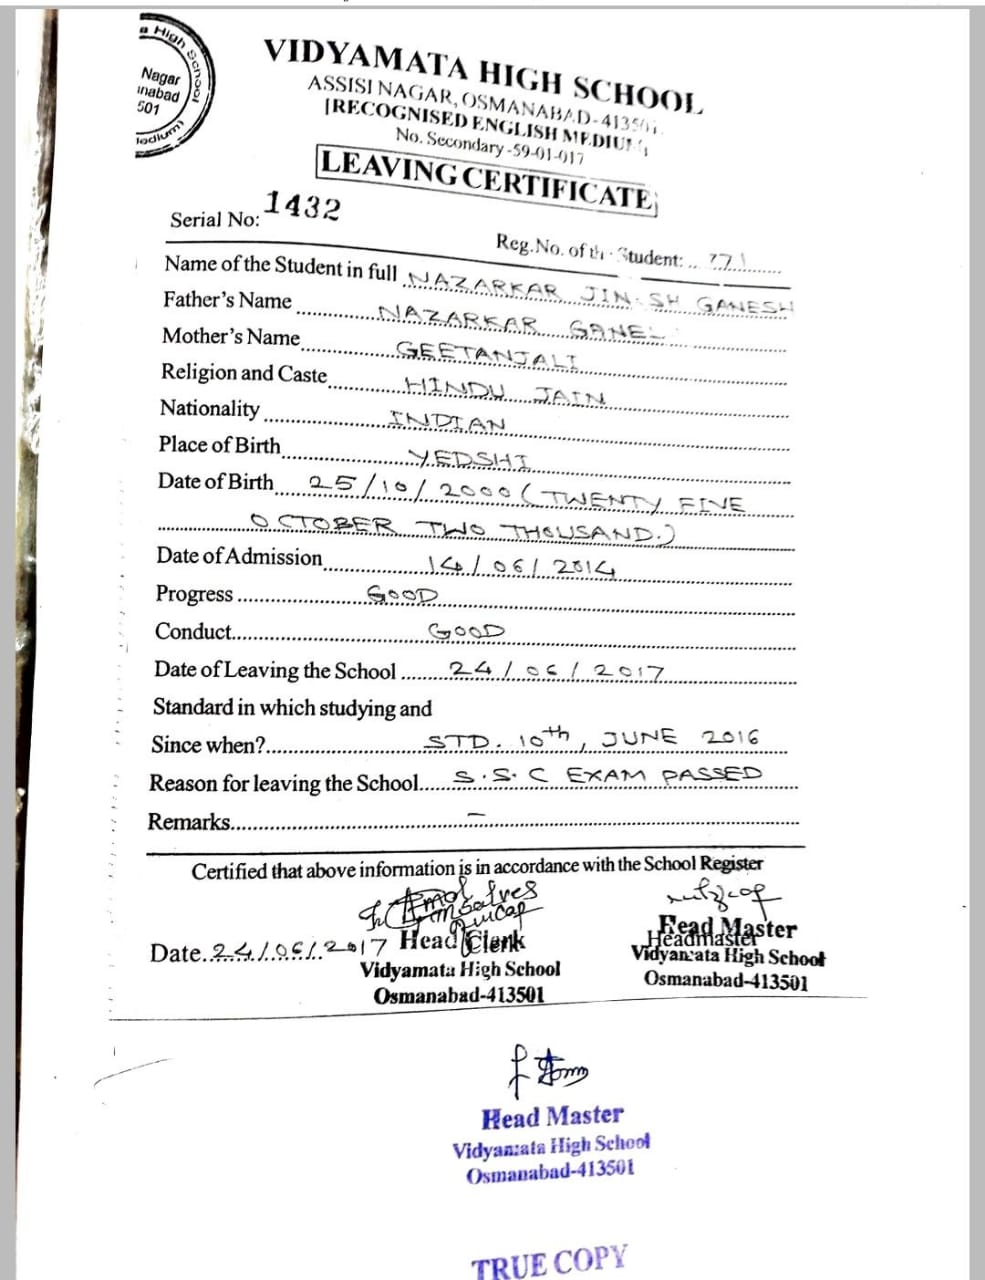 a High School
Nagar
inabad
501
ledium)
VIDYAMATA HIGH SCHOOL
ASSISI NAGAR, OSMANABAD-413501.
[RECOGNISED ENGLISH MEDIUM]
No. Secondary-59-01-017
LEAVING CERTIFICATE
Serial No: 1432
Reg.No. of the Student: .. 771
Name of the Student in full NAZARKAR GANESH
Father's Name NAZARKAR
Mother's Name GEETANJALI
Religion and Caste HINDU JAIN
Nationality INDIAN
Place of Birth YEDSHI
Date of Birth 25/10/2000 (TWENTY FIVE
OCTOBER TWO THOUSAND.)
Date of Admission 14/06/2014
Progress GOOD
Conduct GOOD
Date of Leaving the School 24/06/2017
Standard in which studying and
Since when? STD. 10th, JUNE 2016
Reason for leaving the School S.S.C EXAM PASSED
Remarks —
Certified that above information is in accordance with the School Register
Date. 24/06/2017 Head Clerk
Vidyamata High School
Osmanabad-413501
Head Master
Headmaster
Vidyamata High School
Osmanabad-413501
Head Master
Vidyamata High School
Osmanabad-413501
TRUE COPY